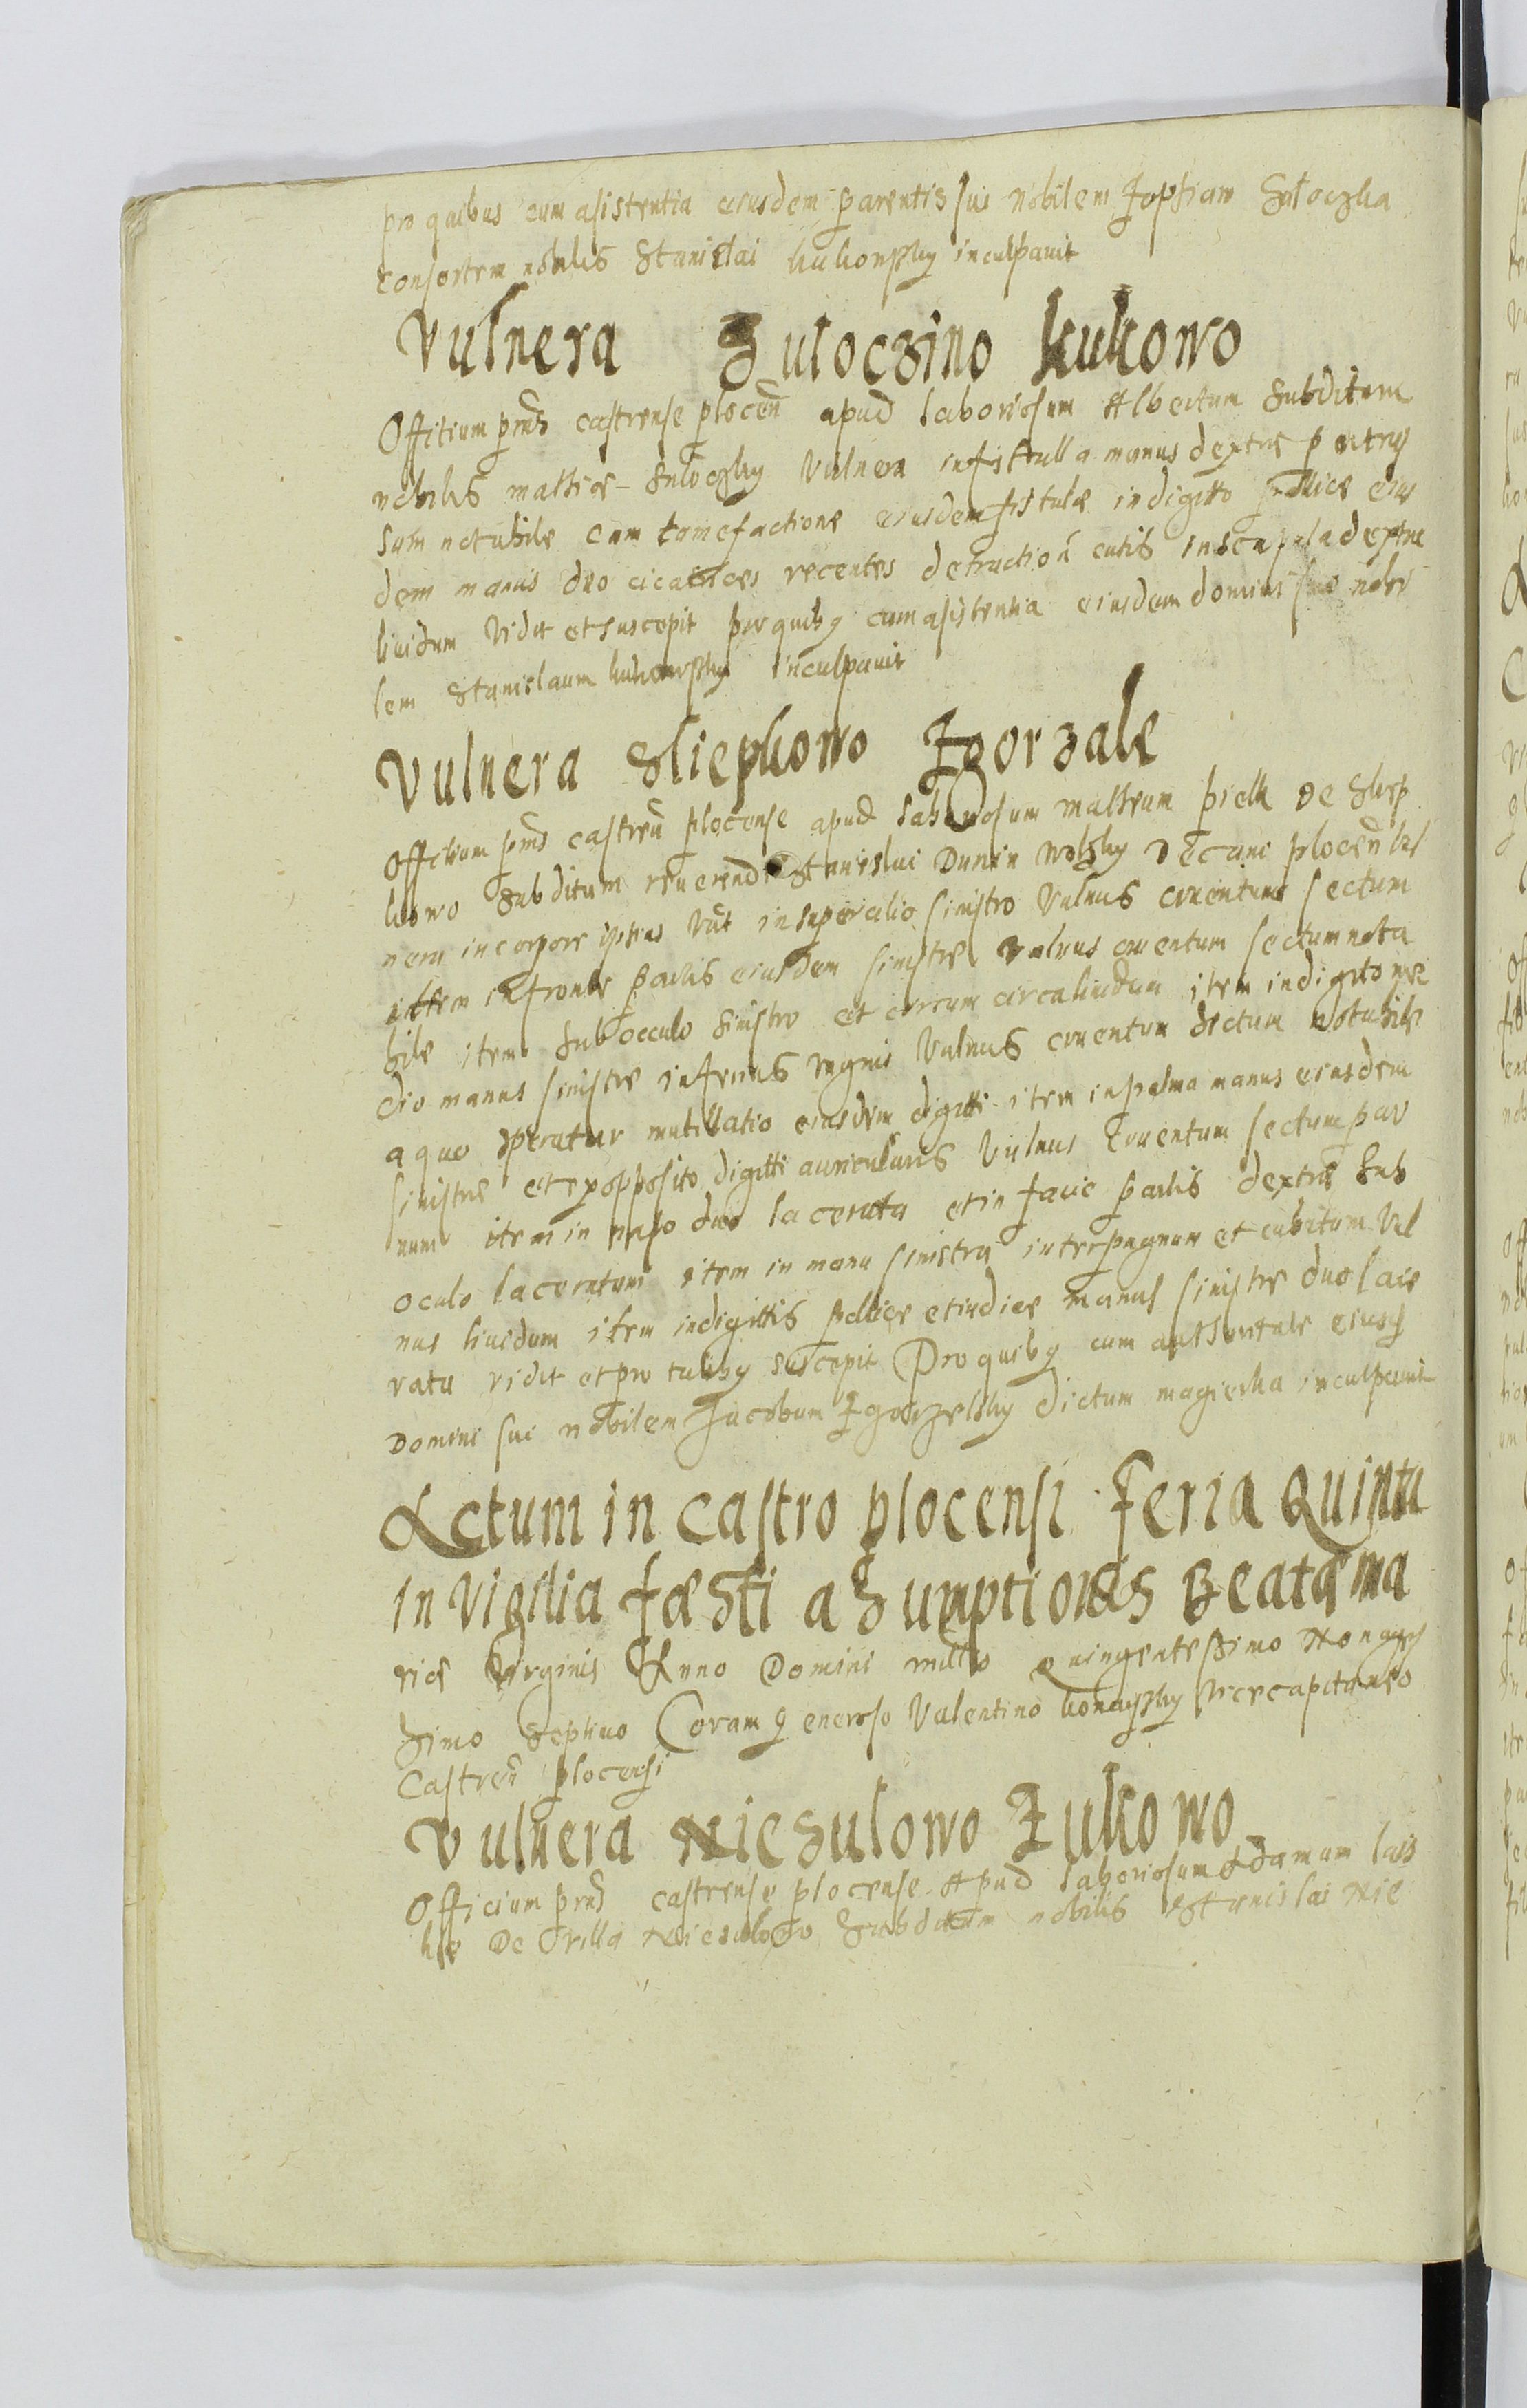 pro quibus cum asistentia eiusdem parentis sui nobilem Zophiam Suloczka
consortem nobilis Stanislai kukowsky inculpauit
Vulnera Suloczino kukowo
Offitium pns castrense plocen apud laboriosum Albertum Subditum
nobilis mathie Suloczky Vulnera in fistulla manus dextre
sum notabile cum tomefactione eiusdem fistule in digitto pollice eius
dem manus duo cicatrices recentes detraction cutis in scapula dextra
liuidum Vidit et suscepit pro quiby cum asistentia eiusdem domini sui nobi
lem Stanislaum kukowsky inculpauit
Vulnera Sliepkowo Zgorzale
Officium pns castren plocense apud laboriosum matheum de Sliep
kowo Subditum reuerendi Stanislai Dunin wolsky Decani plocen Vul
nera in corpore ipsius Vidit in supercilio sinistro Vulnus cruentum sectum
ittem in fronte partis eiusdem sinistre Vulnus cruentum sectum nota
bile item sub occulo sinistro et circum circa liuidum item in digitto me
dio manus sinistre inferius Vngnis Vulnus cruentum sectum notabile
a quo speratur mutillatio eiusdem digitti item in palma manus eiusdem
sinistre et ex opposito digitti auricularis Vulnus Cruentum sectum par
uum item in naso duo lacerata et in facie partis dextre sub
oculo laceratum item in manu sinistra inter pugnum et cubitum Vul
nus liuidum item in digittis pollice et indice manus sinistre duo lace
rata vidit et pro taliby suscepit Pro quiby cum authoritate eiusd
Domini sui nobilem Jacobum Zgorzelsky dictum magierka inculpauit
Actum in Castro plocensi Feria Quinta
in Vigilia faesti aSumptionis Beatae Ma
riae Virginis Anno Domini millo quingentessimo Nonage
simo Septimo Coram generoso Valentino Vicecapitaneo
Castren plocensi
Vulnera Niesulowo Zukowo
Officium pns castrense plocense Apud laboriosum Adamum
De Villa Niesulowo Subditum nobilis Stanislai Nie